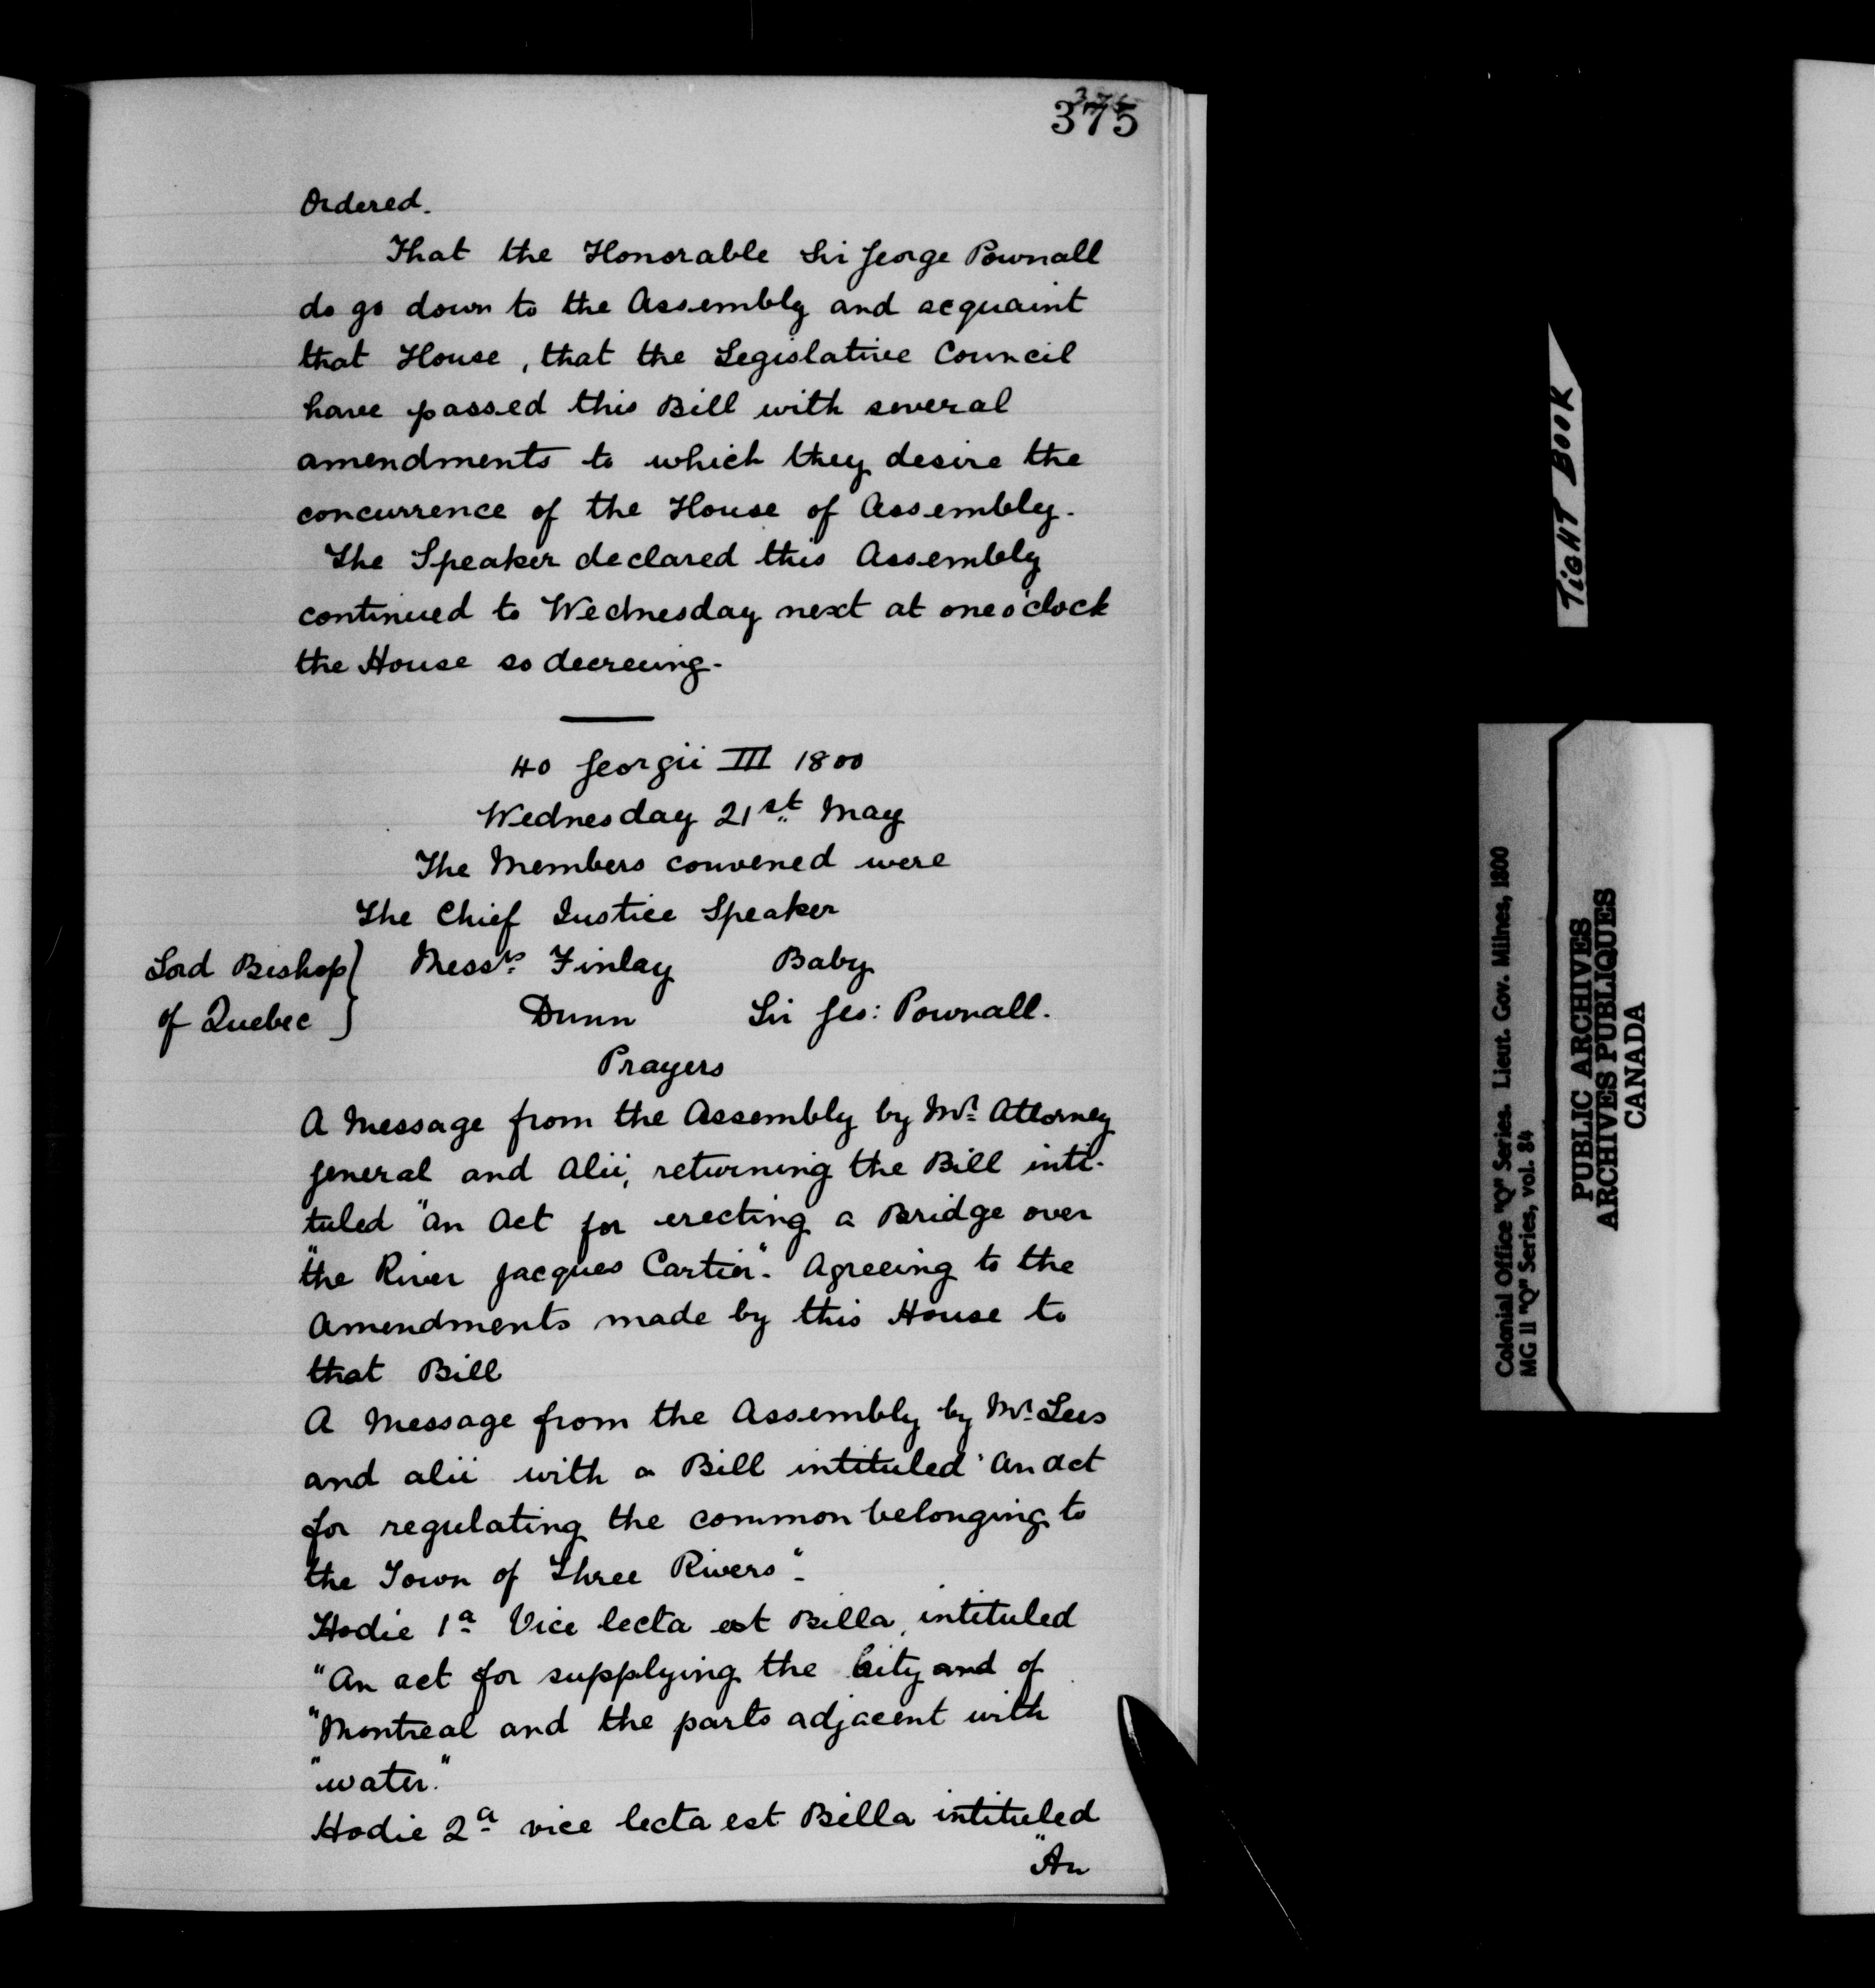 375
Ordered.
That the Honorable Sir George Pownall
do go down to the Assembly and acquaint
that House, that the Legislative Council
have passed this Bill with several
amendments to which they desire the
concurrence of the House of Assembly.
The Speaker declared this Assembly
continued to Wednesday next at one o'clock
the House so decreeing.
40 Georgii III 1800
Wednesday 21st May
The Members convened were
The Chief Justice Speaker
Lord Bishop } Messrs. Finlay Baby
of Quebec } Dunn Sir Geo: Pownall.
Prayers
A Message from the Assembly by Mr. Attorney
General and Alii, returning the Bill inti-
tuled "An Act for erecting a Bridge over
"the River Jacques Cartier". Agreeing to the
Amendments made by this House to
that Bill
A Message from the Assembly by Mr. Lees
and alii with a Bill intituled "An act
for regulating the common belonging to
"the Town of Three Rivers".
Hodie 1a Vice lecta est Billa, intituled
"An act for supplying the City and of
"Montreal and the parts adjacent with
"water."
Hodie 2a vice lecta est Billa intituled
"An
TIGHT BOOK
Colonial Office "Q" Series. Lieut. Gov. Milnes, 1800
MG 11 "Q" Series, vol. 84
PUBLIC ARCHIVES
ARCHIVES PUBLIQUES
CANADA